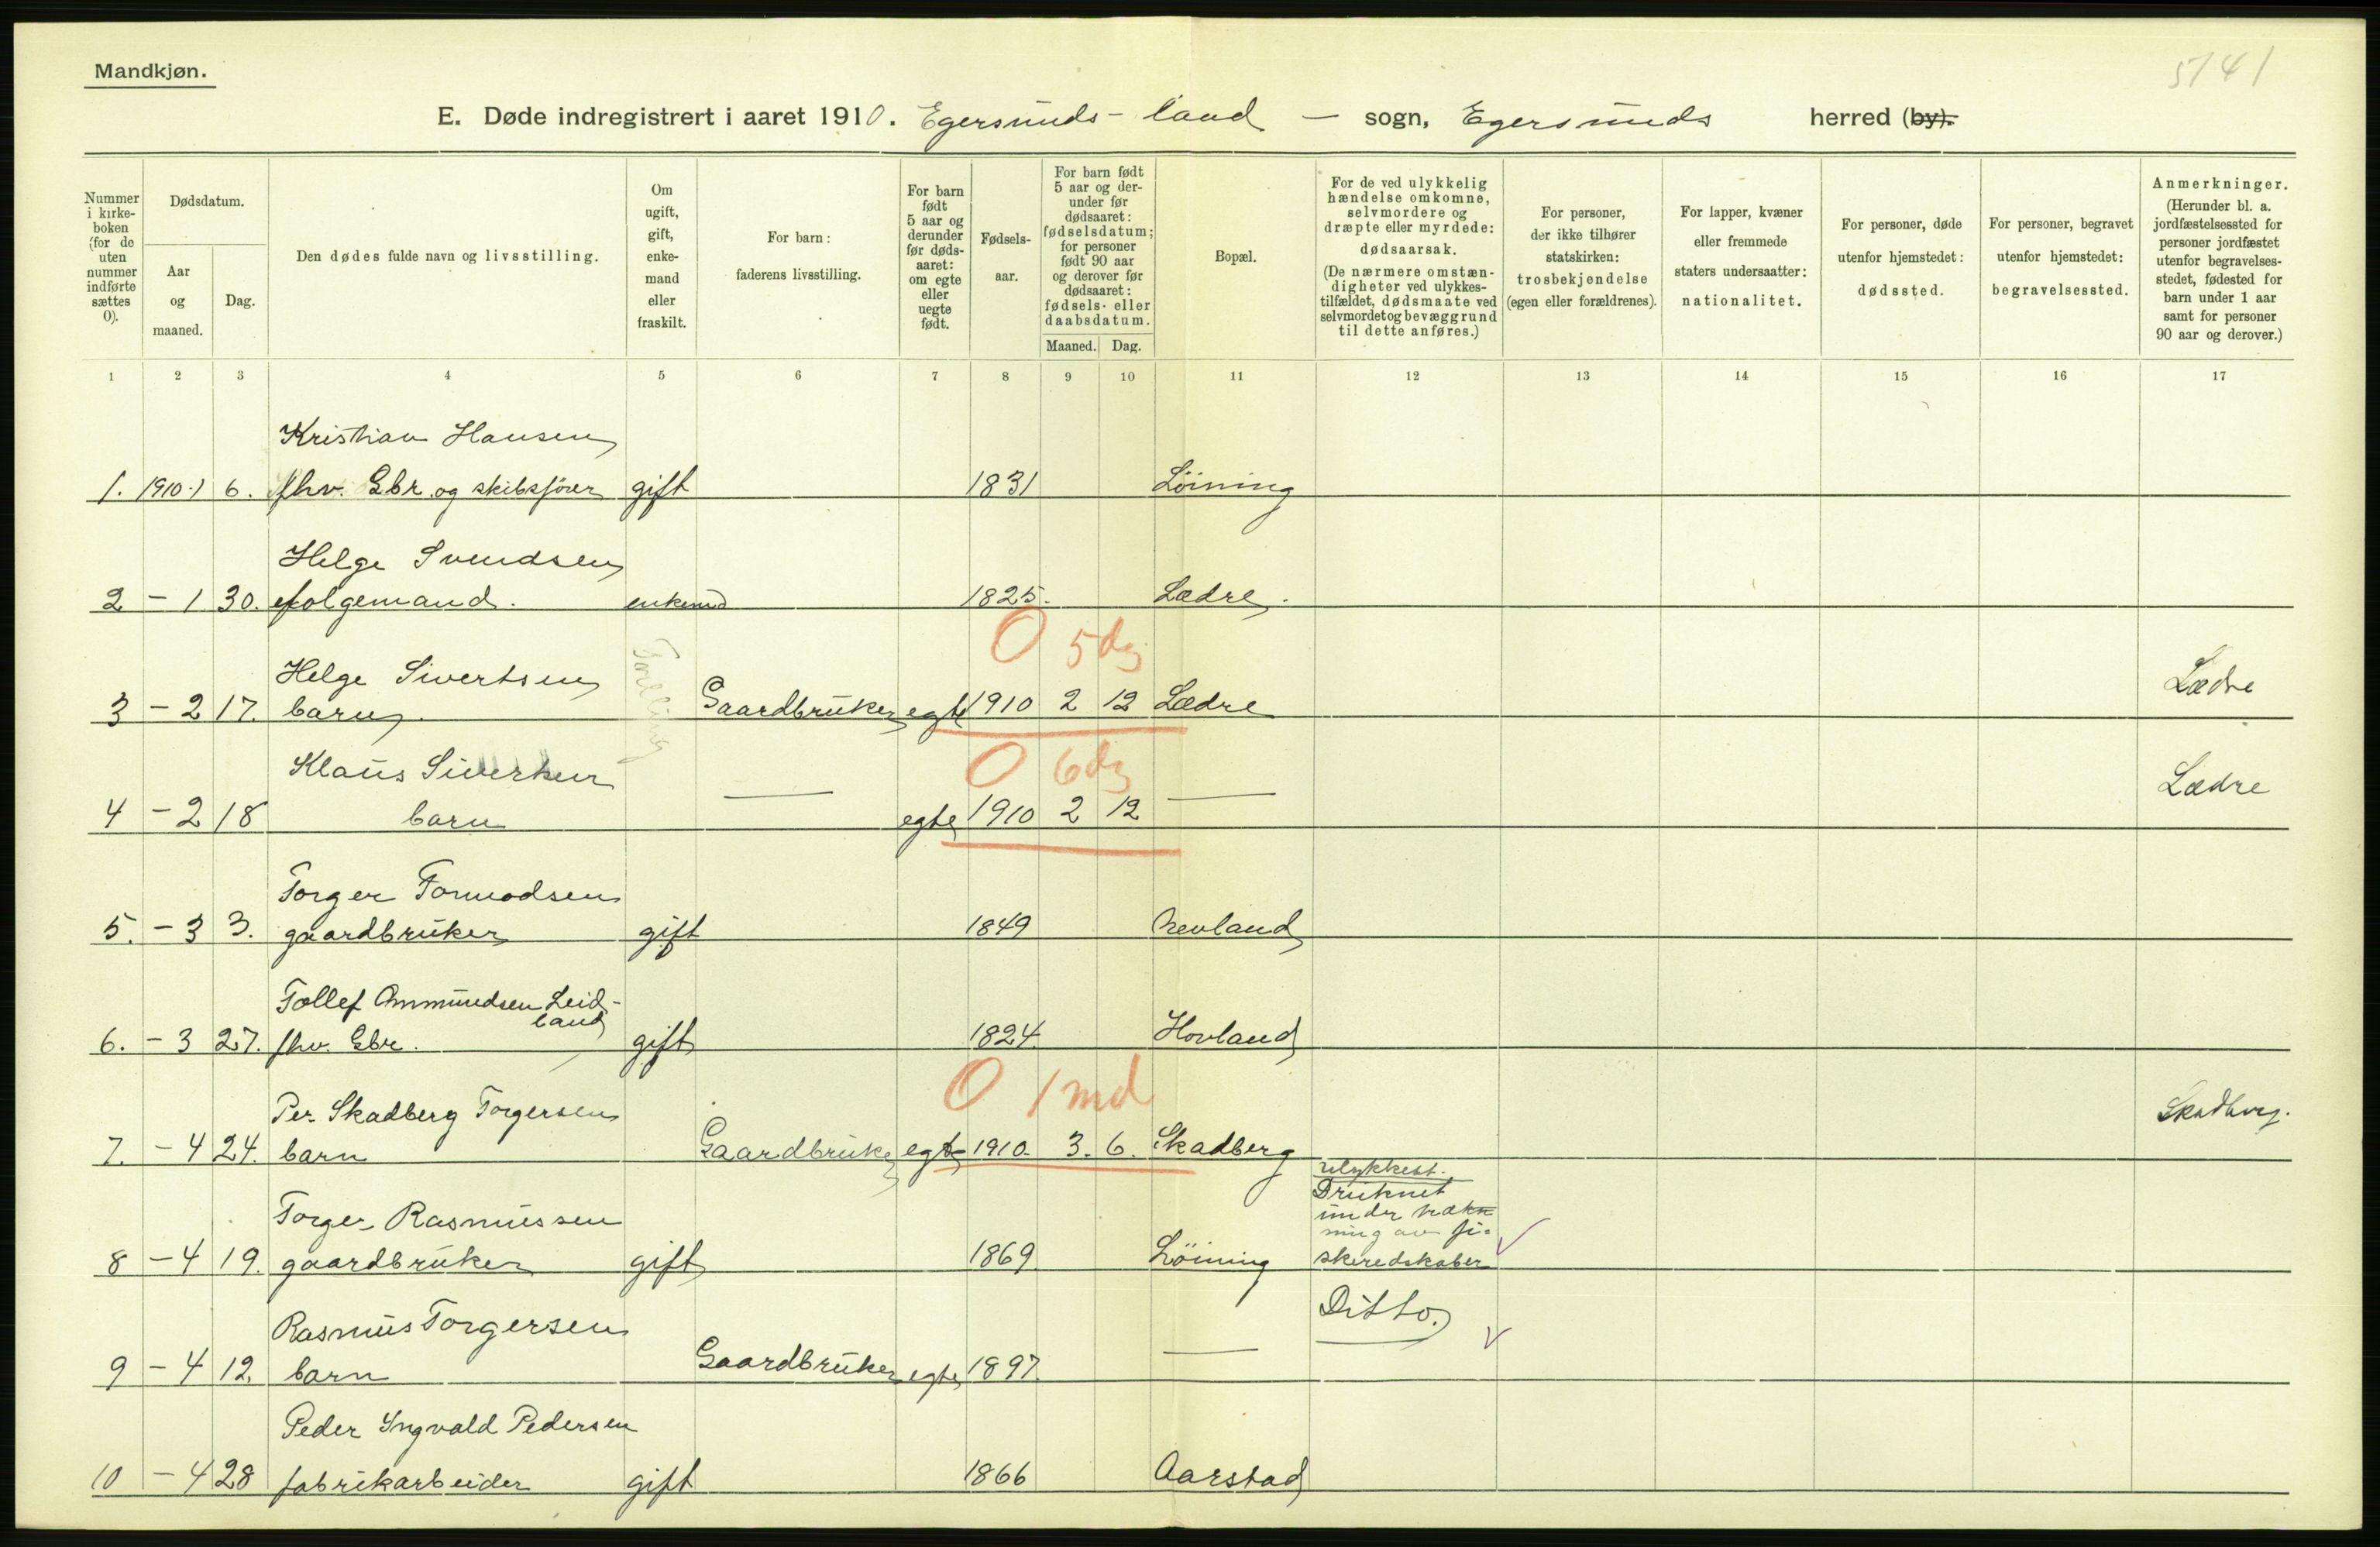 Mandkjøn.
5141
E. Døde indregistrert i aaret 1910. Egersunds-land — sogn, Egersunds herred (by).
Nummer i kirke-boken (for de uten nummer indførte sættes 0).
Dødsdatum.
Aar og maaned.
Dag.
Den dødes fulde navn og livsstilling.
Om ugift, gift, enke-mand eller fraskilt.
For barn: faderens livsstilling.
For barn født 5 aar og derunder før døds-aaret: om egte eller uegte født.
Fødsels-aar.
For barn født 5 aar og der-under før dødsaaret: fødselsdatum; for personer født 90 aar og derover før dødsaaret: fødsels- eller daabsdatum.
Maaned. Dag.
Bopæl.
For de ved ulykkelig hændelse omkomne, selvmordere og dræpte eller myrdede: dødsaarsak. (De nærmere omstæn-digheter ved ulykkes-tilfældet, dødsmaate ved selvmordet og bevæggrund til dette anføres.)
For personer, der ikke tilhører statskirken: trosbekjendelse (egen eller forældrenes).
For lapper, kvæner eller fremmede staters undersaatter: nationalitet.
For personer, døde utenfor hjemstedet: dødssted.
For personer, begravet utenfor hjemstedet: begravelsessted.
Anmerkninger. (Herunder bl. a. jordfæstelsessted for personer jordfæstet utenfor begravelses-stedet, fødested for barn under 1 aar samt for personer 90 aar og derover.)
1 2 3 4 5 6 7 8 9 10 11 12 13 14 15 16 17
Kristian Hansen
1. 1910-1 6. fhv. Gbr. og skibsfører gift 1831 Löining
Helge Svendsen
2 - 1 30. folgemand. enkemd 1825. Lædre.
0 5 dg
Tvilling
Helge Sivertsen Lædre
3 - 2 17. barn. Gaardbruker egte 1910 2 12 Lædre
0 6 dg
Klaus Sivertsen — Lædre
4 - 2 18 barn egte 1910 2 12 —
Torger Tormodsen
5. - 3 3. gaardbruker gift 1849 Nevland
Tollef Ommundsen Leid-
land
6. - 3 27. fhv. Gbr. gift 1824. Hovland
0 1 md
Per Skadberg Torgersen Skadberg.
7. - 4 24. barn Gaardbruker egte 1910. 3. 6. Skadberg
ulykkest.
Druknet
under træk
ning av fi=
Torger Rasmussen
8 - 4 19. gaardbruker gift 1869 Löining skeredskaber
Ditto.
Rasmus Torgersen
9 - 4 12. barn Gaardbruker egte 1897. —
Peder Ingvald Pedersen
10 - 4 28 fabrikarbeider gift 1866 Aarstad